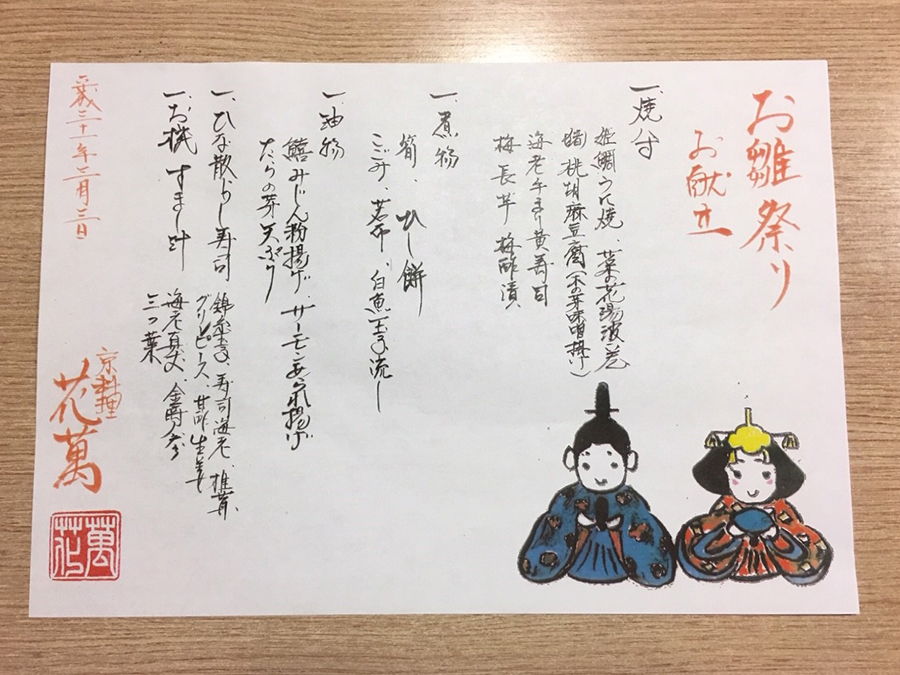 お雛祭り
お献立
一、焼き
姫鯛うに焼、菜の花湯波巻
蛸桃胡麻豆腐(木の芽味噌掛け)
海老手まり黄寿司
梅長芋 梅酢漬
一、煮物
筍、ひし餅
こごみ、若布、白魚玉子流し
一、油物
鱚みじん粉揚げ、サーモン安られ揚げ
たらの芽天ぷら
一、ひな散らし寿司
錦糸玉子、寿司海老、椎茸、
グリンピース、甘酢生姜
一、お椀 すまし汁
海老真丈、金時人参
三つ葉
平成三十一年三月三日
京料理
花萬
花萬